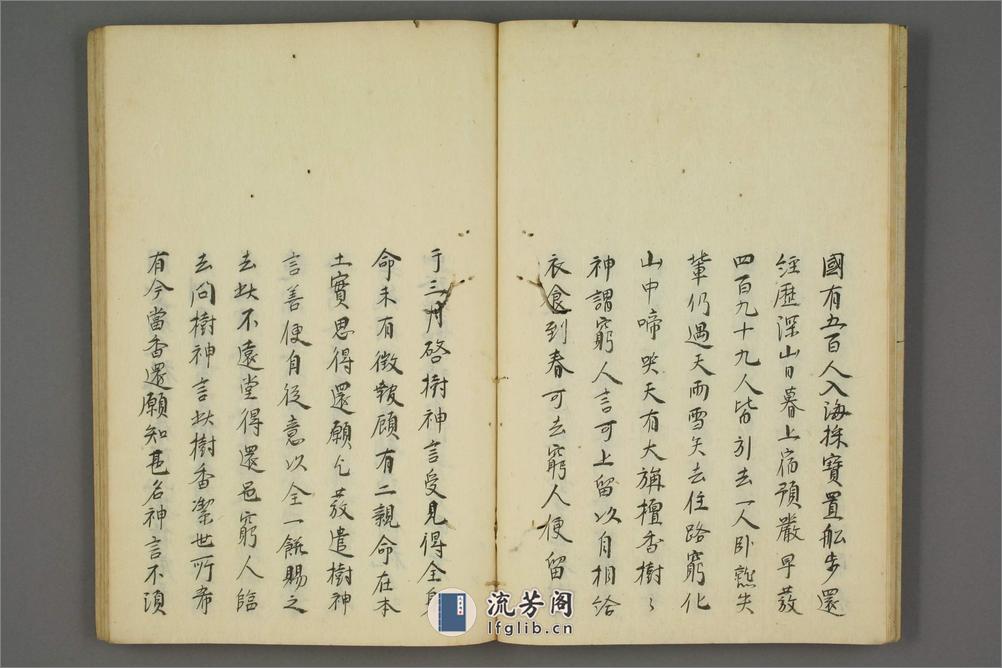 國有五百人入海採寶置船步還
經歷深山日暮上宿預嚴早發
四百九十九人皆引去一人臥熟失
輩仍遇天雨雪矢去住路窮化
山中啼哭天有大旃檀香樹〻
神謂窮人言可上留以自相給
衣食到春可去窮人便留
于三月啓樹神言受見得全身
命未有微報顧有二親命在本
土實思得還願乞發遣樹神
言善便自從意以全一餅賜之
去此不遠堂得還邑窮人臨
去向樹神言此樹香潔世所希
有今當香還願知甚名神言不須
流芳阁
lfglib.cn